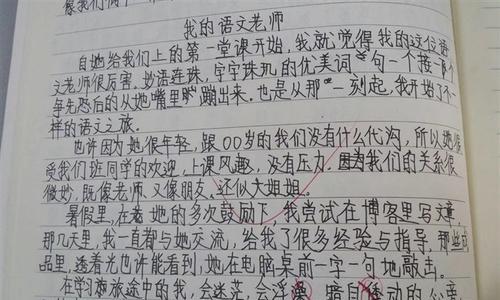 像我们俩个
我的语文老师
自她给我们上的第一堂课开始,我就觉得我的这位语
文老师很厉害。妙语连珠,字字珠玑的优美词句一个接一个
争先恐后的从她嘴里蹦出来。也是从那一刻起,我开始了不一
样的语文之旅。
也许因为她很年轻,跟00岁的我们没有什么代沟,所以她很
受我们班同学的欢迎,上课风趣,没有压力。因为我们的关系很
微妙,既像老师,又像朋友,还似大姐姐。
暑假里,在她的多次鼓励下,我尝试在博客里写文章,
那几天里,我一直都与她交流,给我了很多经验与指导,那些
品里,透着光也许能看到,她在电脑桌前一字一句地敲击。
在学习旅途中的我,会迷茫,会浮 暗自 动的心